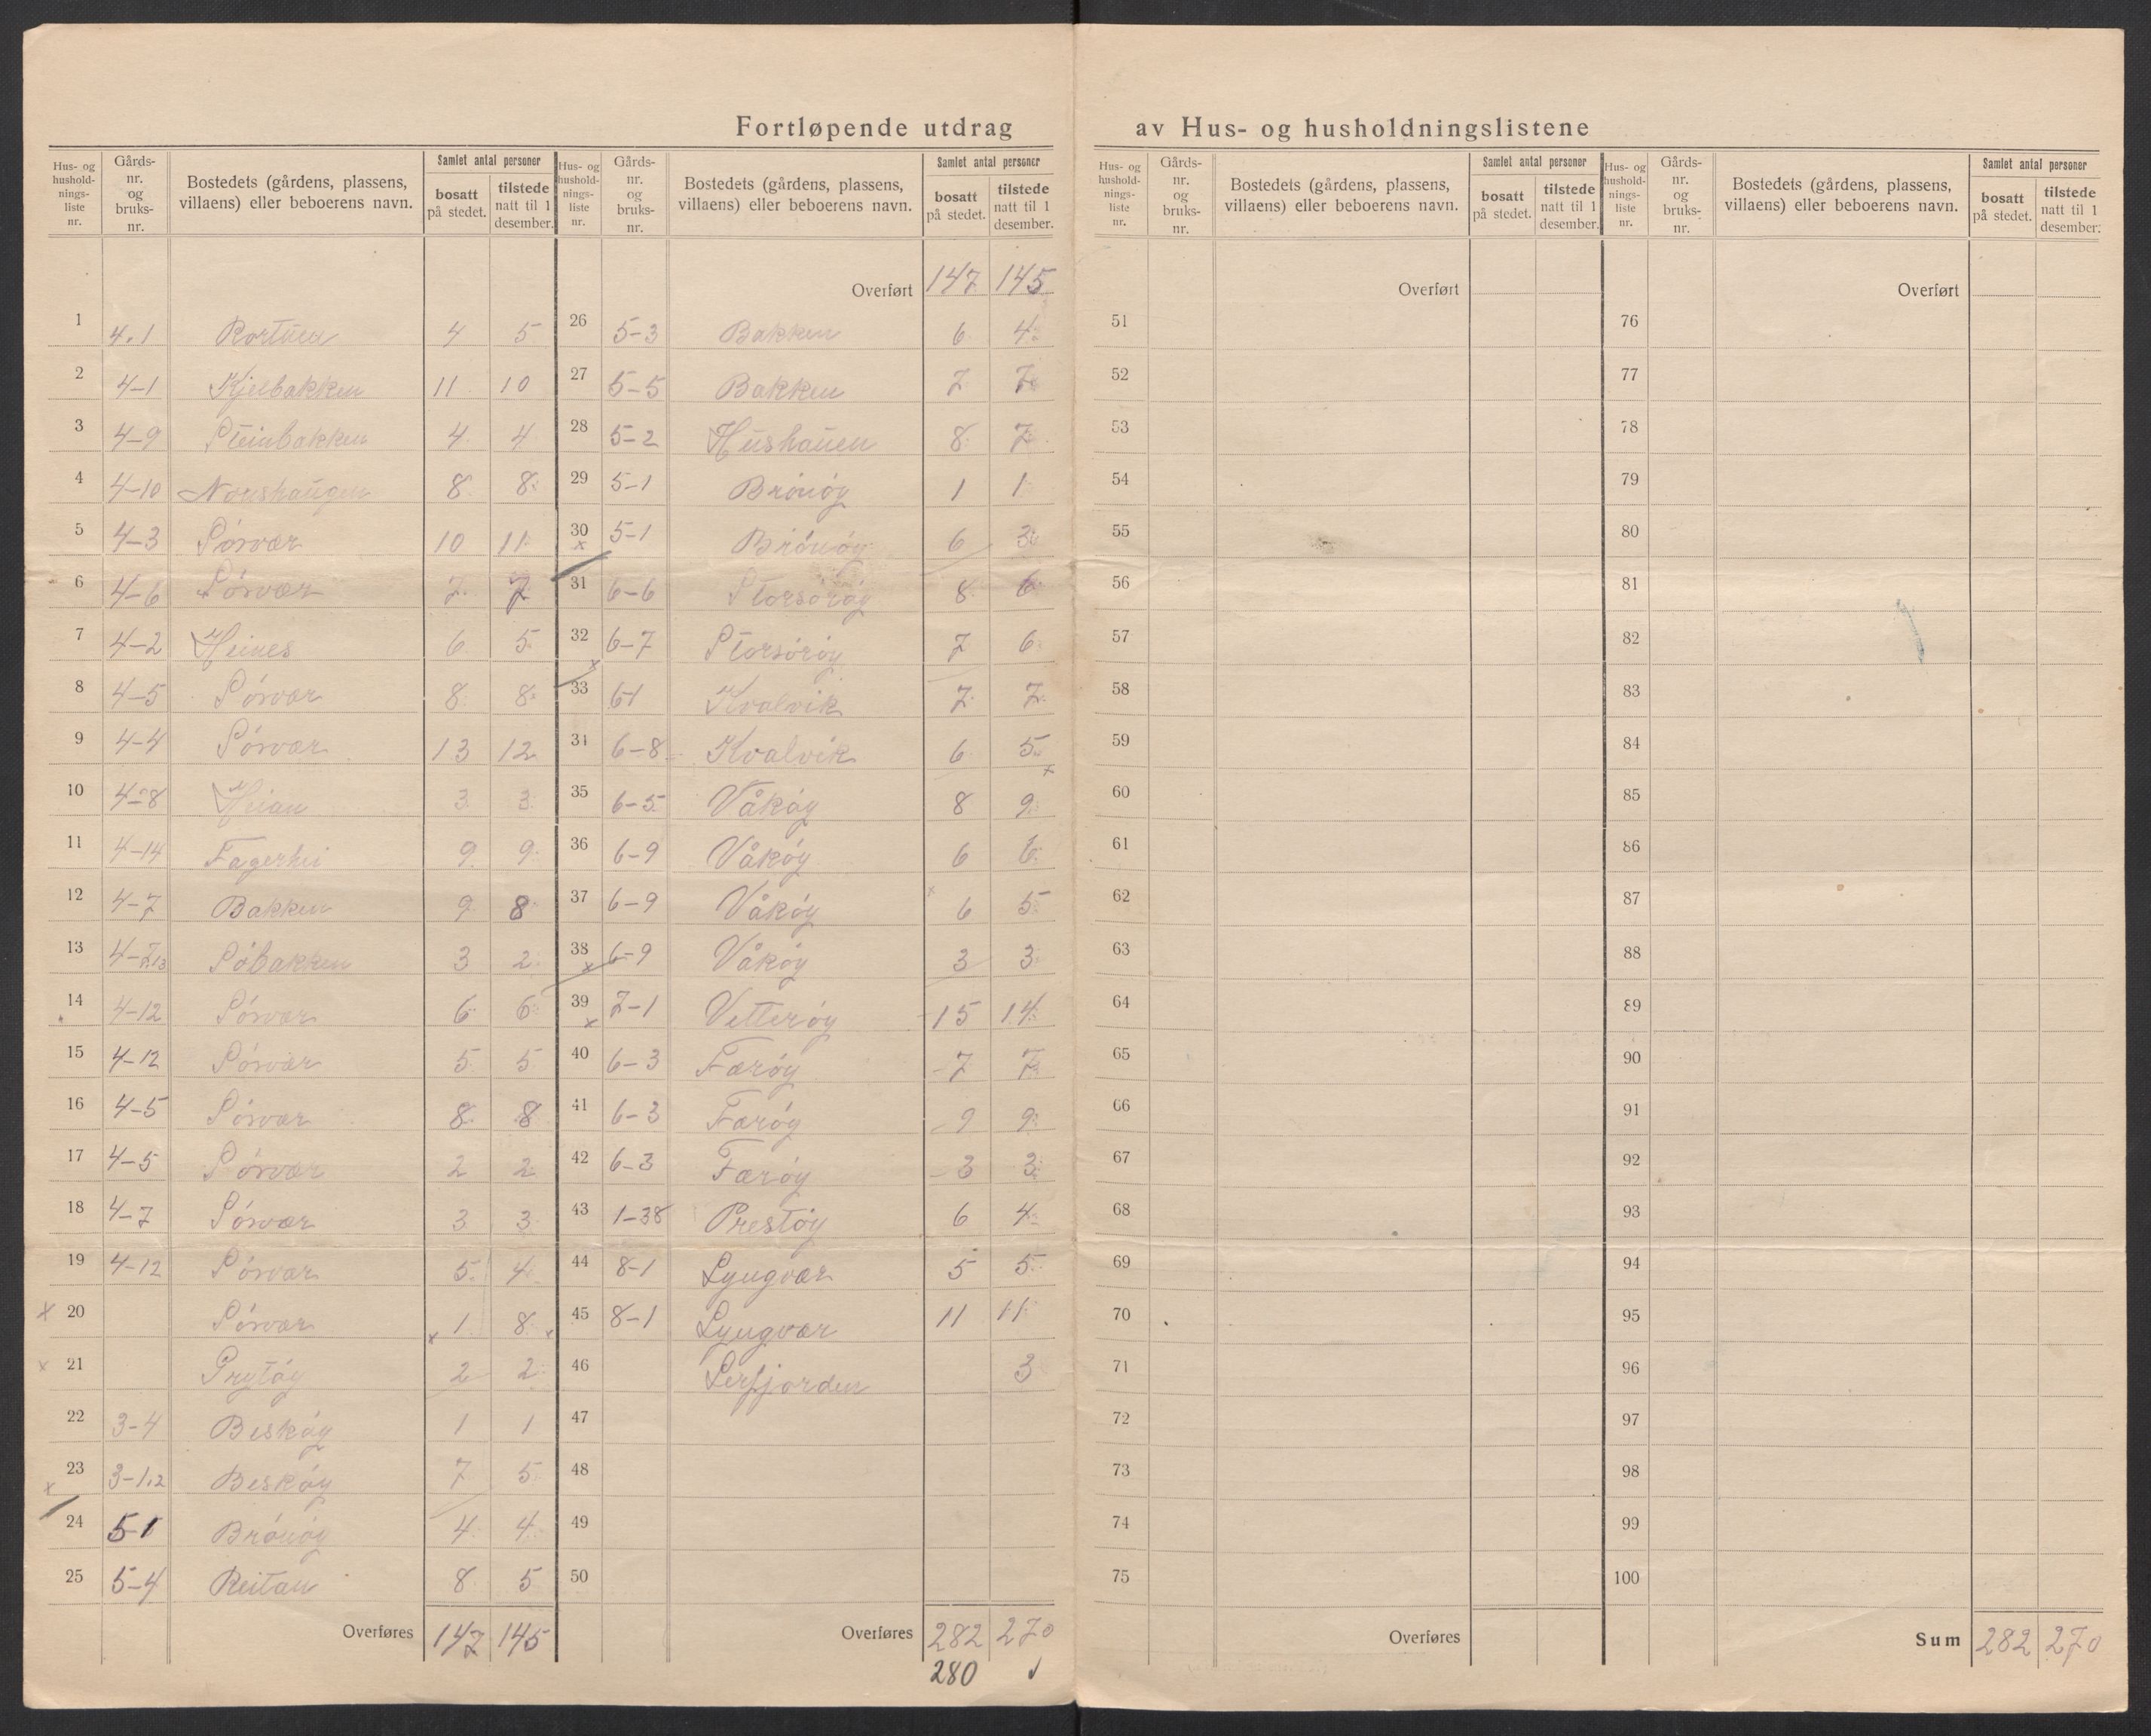 Fortløpende utdrag av Hus- og husholdningslistene
Hus- og husholdningsliste nr. | Gårds-nr. og bruks-nr. | Bostedets (gårdens, plassens, villaens) eller beboerens navn. | Samlet antal personer bosatt på stedet. | tilstede natt til 1 desember.
1 4.1 4 5
2 4-1 Kjelbakken 11 10
3 4-9 Steinbakken 4 4
4 4-10 Norshaugen 8 8
5 4-3 Sörvær 10 11
6 4-6 Sörvær 7 7
7 4-2 Heines 6 5
8 4-5 Sörvær 8 8
9 4-4 Sörvær 13 12
10 4-8 Heian 3 3
11 4-14 Fagerhei 9 9
12 4-7 Bakken 9 8
13 Söbakken 3 2
14 4-12 Sörvær 6 6
15 4-12 Sörvær 5 5
16 4-5 Sörvær 8 8
17 4-5 Sörvær 2 2
18 4-7 Sörvær 3 3
19 4-12 Sörvær 5 4
x 20 Sörvær x 1 8 x
x 21 Prytöy 2 2
22 3-4 Besköy 1 1
23 x 3-1,2 Besköy 7 5
24 5-1 Brönöy 4 4
25 5-4 Reitan 8 5
Overføres 147 145
Hus- og husholdningsliste nr. | Gårds-nr. og bruks-nr. | Bostedets (gårdens, plassens, villaens) eller beboerens navn. | Samlet antal personer bosatt på stedet. | tilstede natt til 1 desember.
Overført 147 145
26 5-3 Bakken 6 4
27 5-5 Bakken 7 7
28 5-2 Hushauen 8 7
29 5-1 Brönöy 1 1
30 x 5-1 Brönöy 6 3
31 6-6 Storsöröy 8 6
32 x 6-7 Storsöröy 7 6
33 6-1 Kvalvik 7 7
34 6-8 Kvalvik 6 5 x
35 6-5 Våköy 8 9
36 6-9 Våköy 6 6
37 6-9 Våköy x 6 5
38 x 6-9 Våköy 3 3
39 x 7-1 Vetteröy 15 14
40 6-3 Færöy 7 7
41 6-3 Færöy 9 9
42 6-3 Færöy 3 3
43 1-38 Prestöy 6 4
44 8-1 Lyngvær 5 5
45 8-1 Lyngvær 11 11
46 Leirfjorden 3
47
48
49
50
Overføres 282 270
280
Hus- og husholdningsliste nr. | Gårds-nr. og bruks-nr. | Bostedets (gårdens, plassens, villaens) eller beboerens navn. | Samlet antal personer bosatt på stedet. | tilstede natt til 1 desember.
Overført
51
52
53
54
55
56
57
58
59
60
61
62
63
64
65
66
67
68
69
70
71
72
73
74
75
Overføres
Hus- og husholdningsliste nr. | Gårds-nr. og bruks-nr. | Bostedets (gårdens, plassens, villaens) eller beboerens navn. | Samlet antal personer bosatt på stedet. | tilstede natt til 1 desember.
Overført
76
77
78
79
80
81
82
83
84
85
86
87
88
89
90
91
92
93
94
95
96
97
98
99
100
Sum 282 270